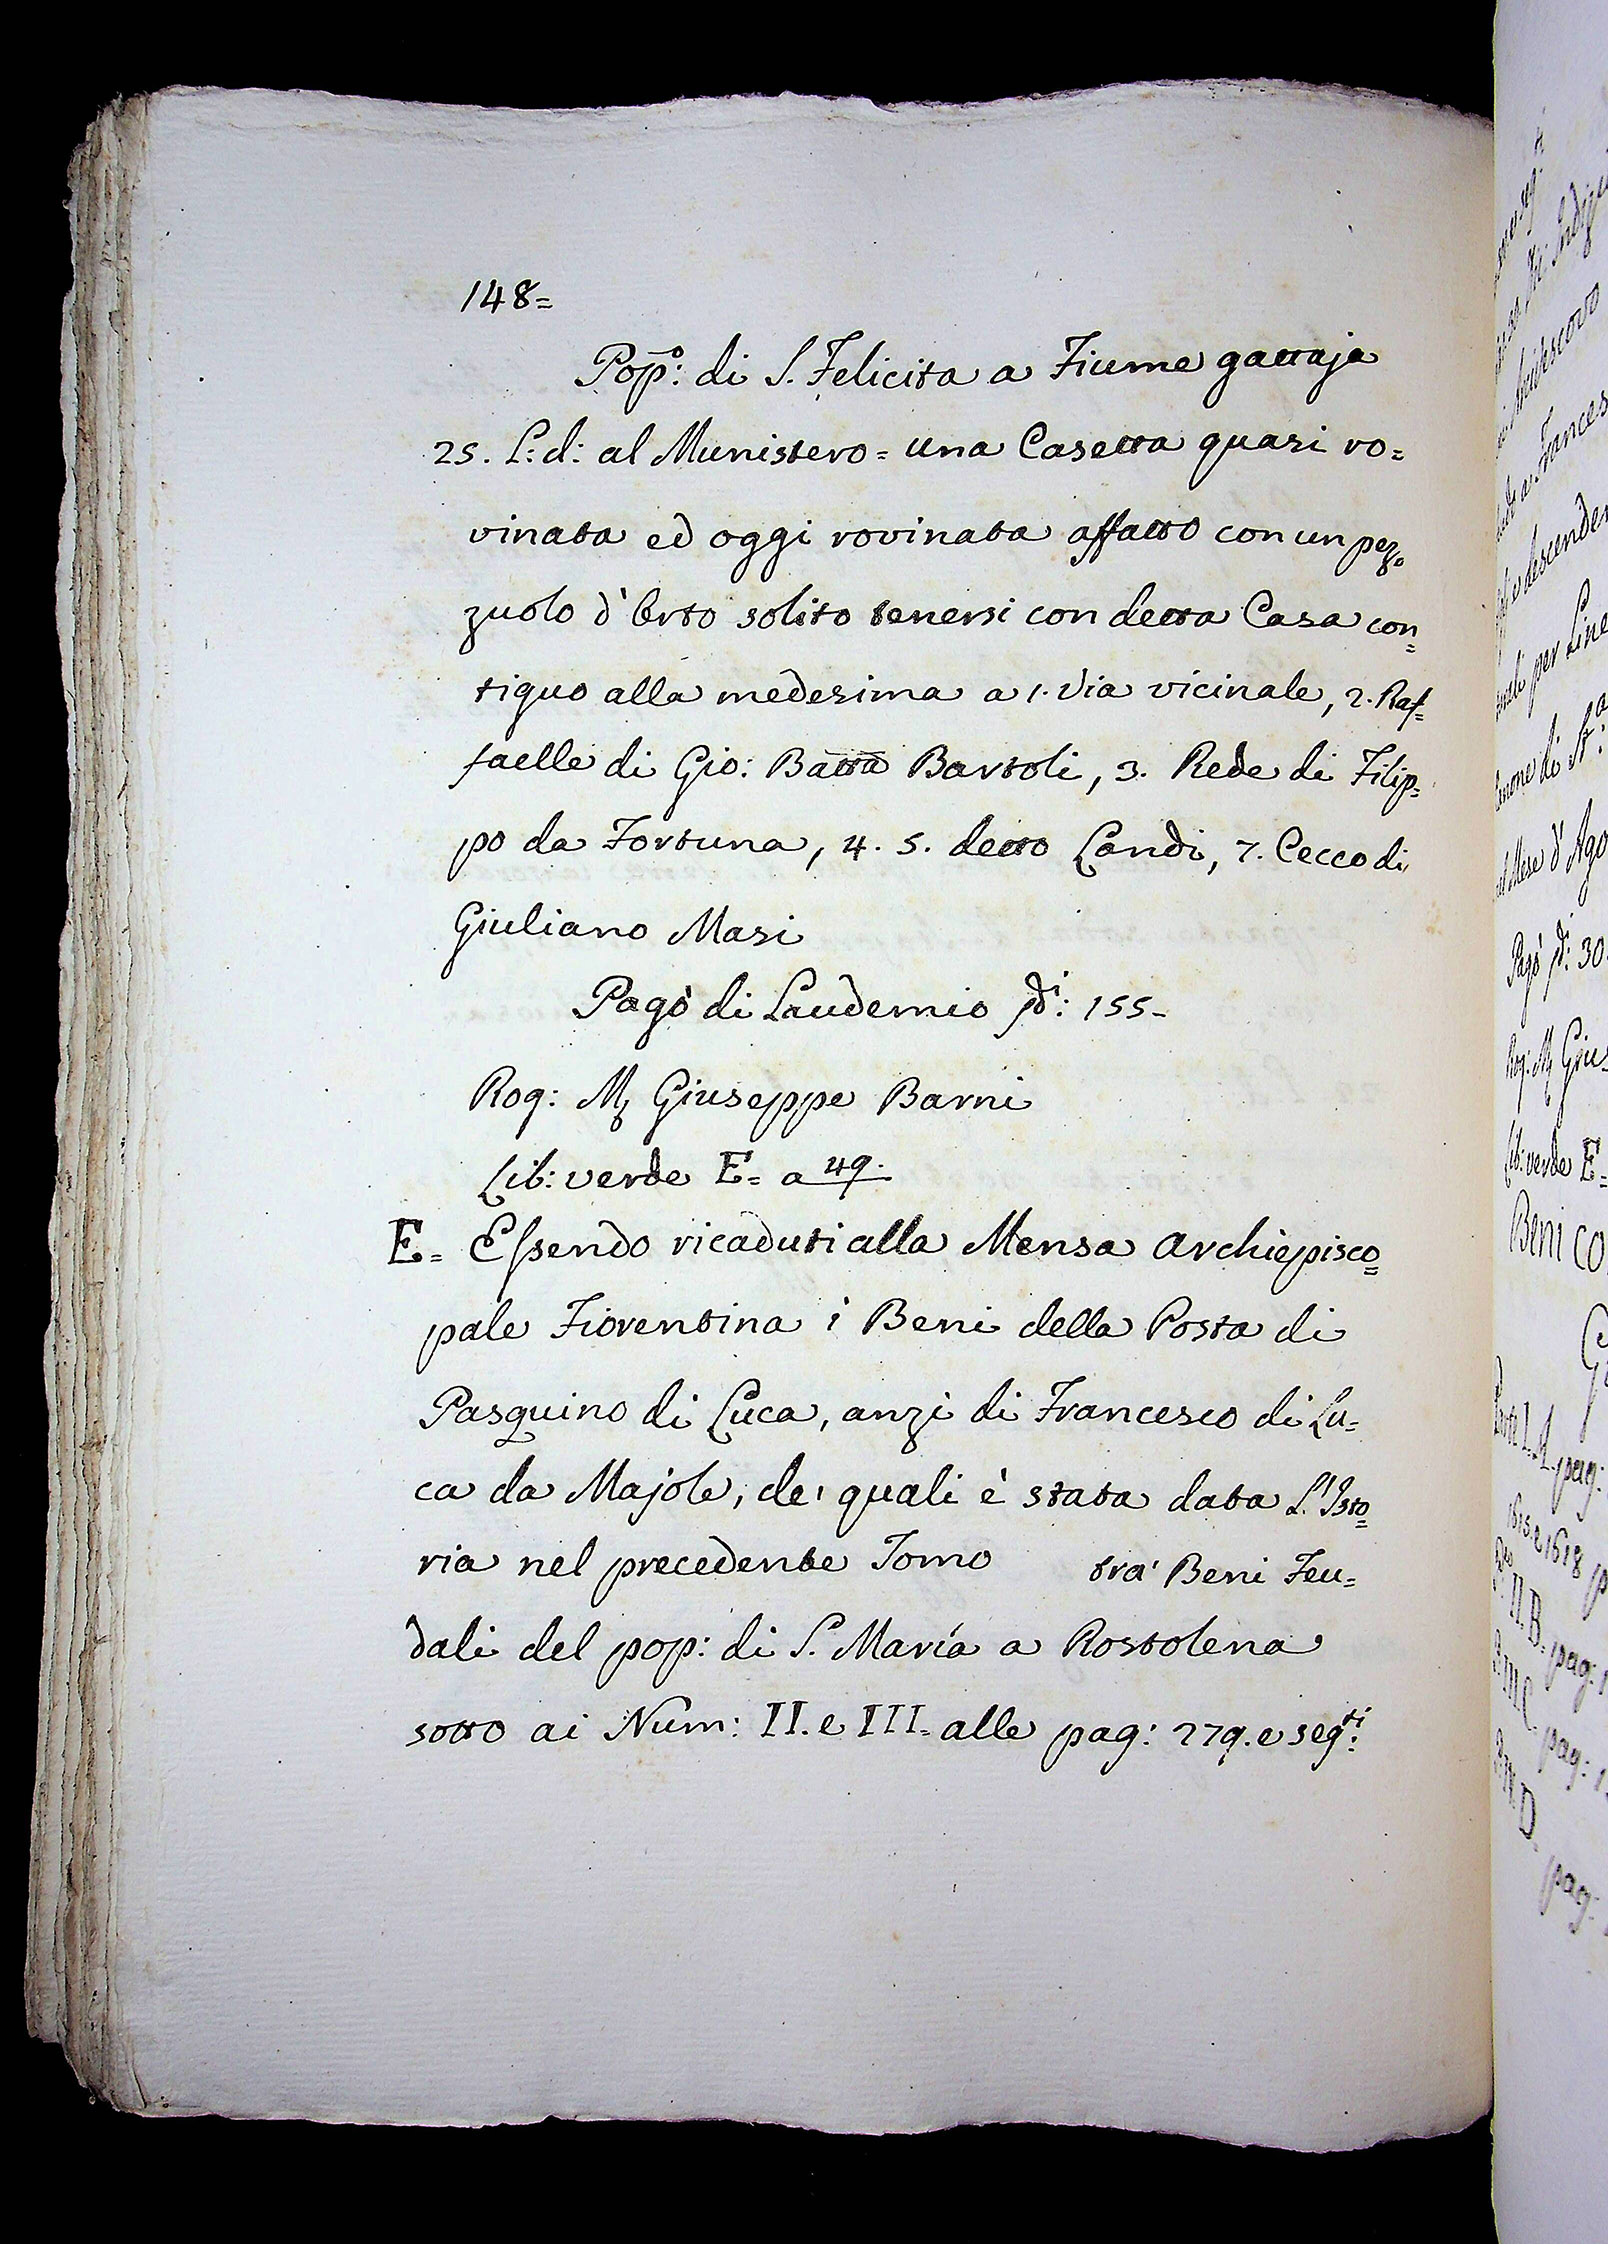 148=
Pop̃o: di S. Felicita a Fiume gattaja
25. L: d: al Munistero = una Casetta quasi ro=
vinata ed oggi rovinata affatto con un pez=
zuolo d'Orto solito tenersi con detta Casa con=
tiguo alla medesima a 1. Via vicinale, 2. Raf=
faelle di Gio: Batta Bartoli, 3. Rede di Filip=
po da Fortuna, 4. 5. detto Landi, 7. Cecco di
Giuliano Masi
Pagò di Laudemio 155-
Rog: Giuseppe Barni
Lib: verde E= a 49.
E= Essendo ricaduti alla Mensa Archiepisco=
pale Fiorentina i Beni della Posta di
Pasquino di Luca, anzi di Francesco di Lu=
ca da Majole, de' quali è stata data L'Isto=
ria nel precedente Tomo tra' Beni Feu=
dali del pop: di S. Maria a Rostolena
sotto ai Num: II. e III. alle pag: 279. e segti: